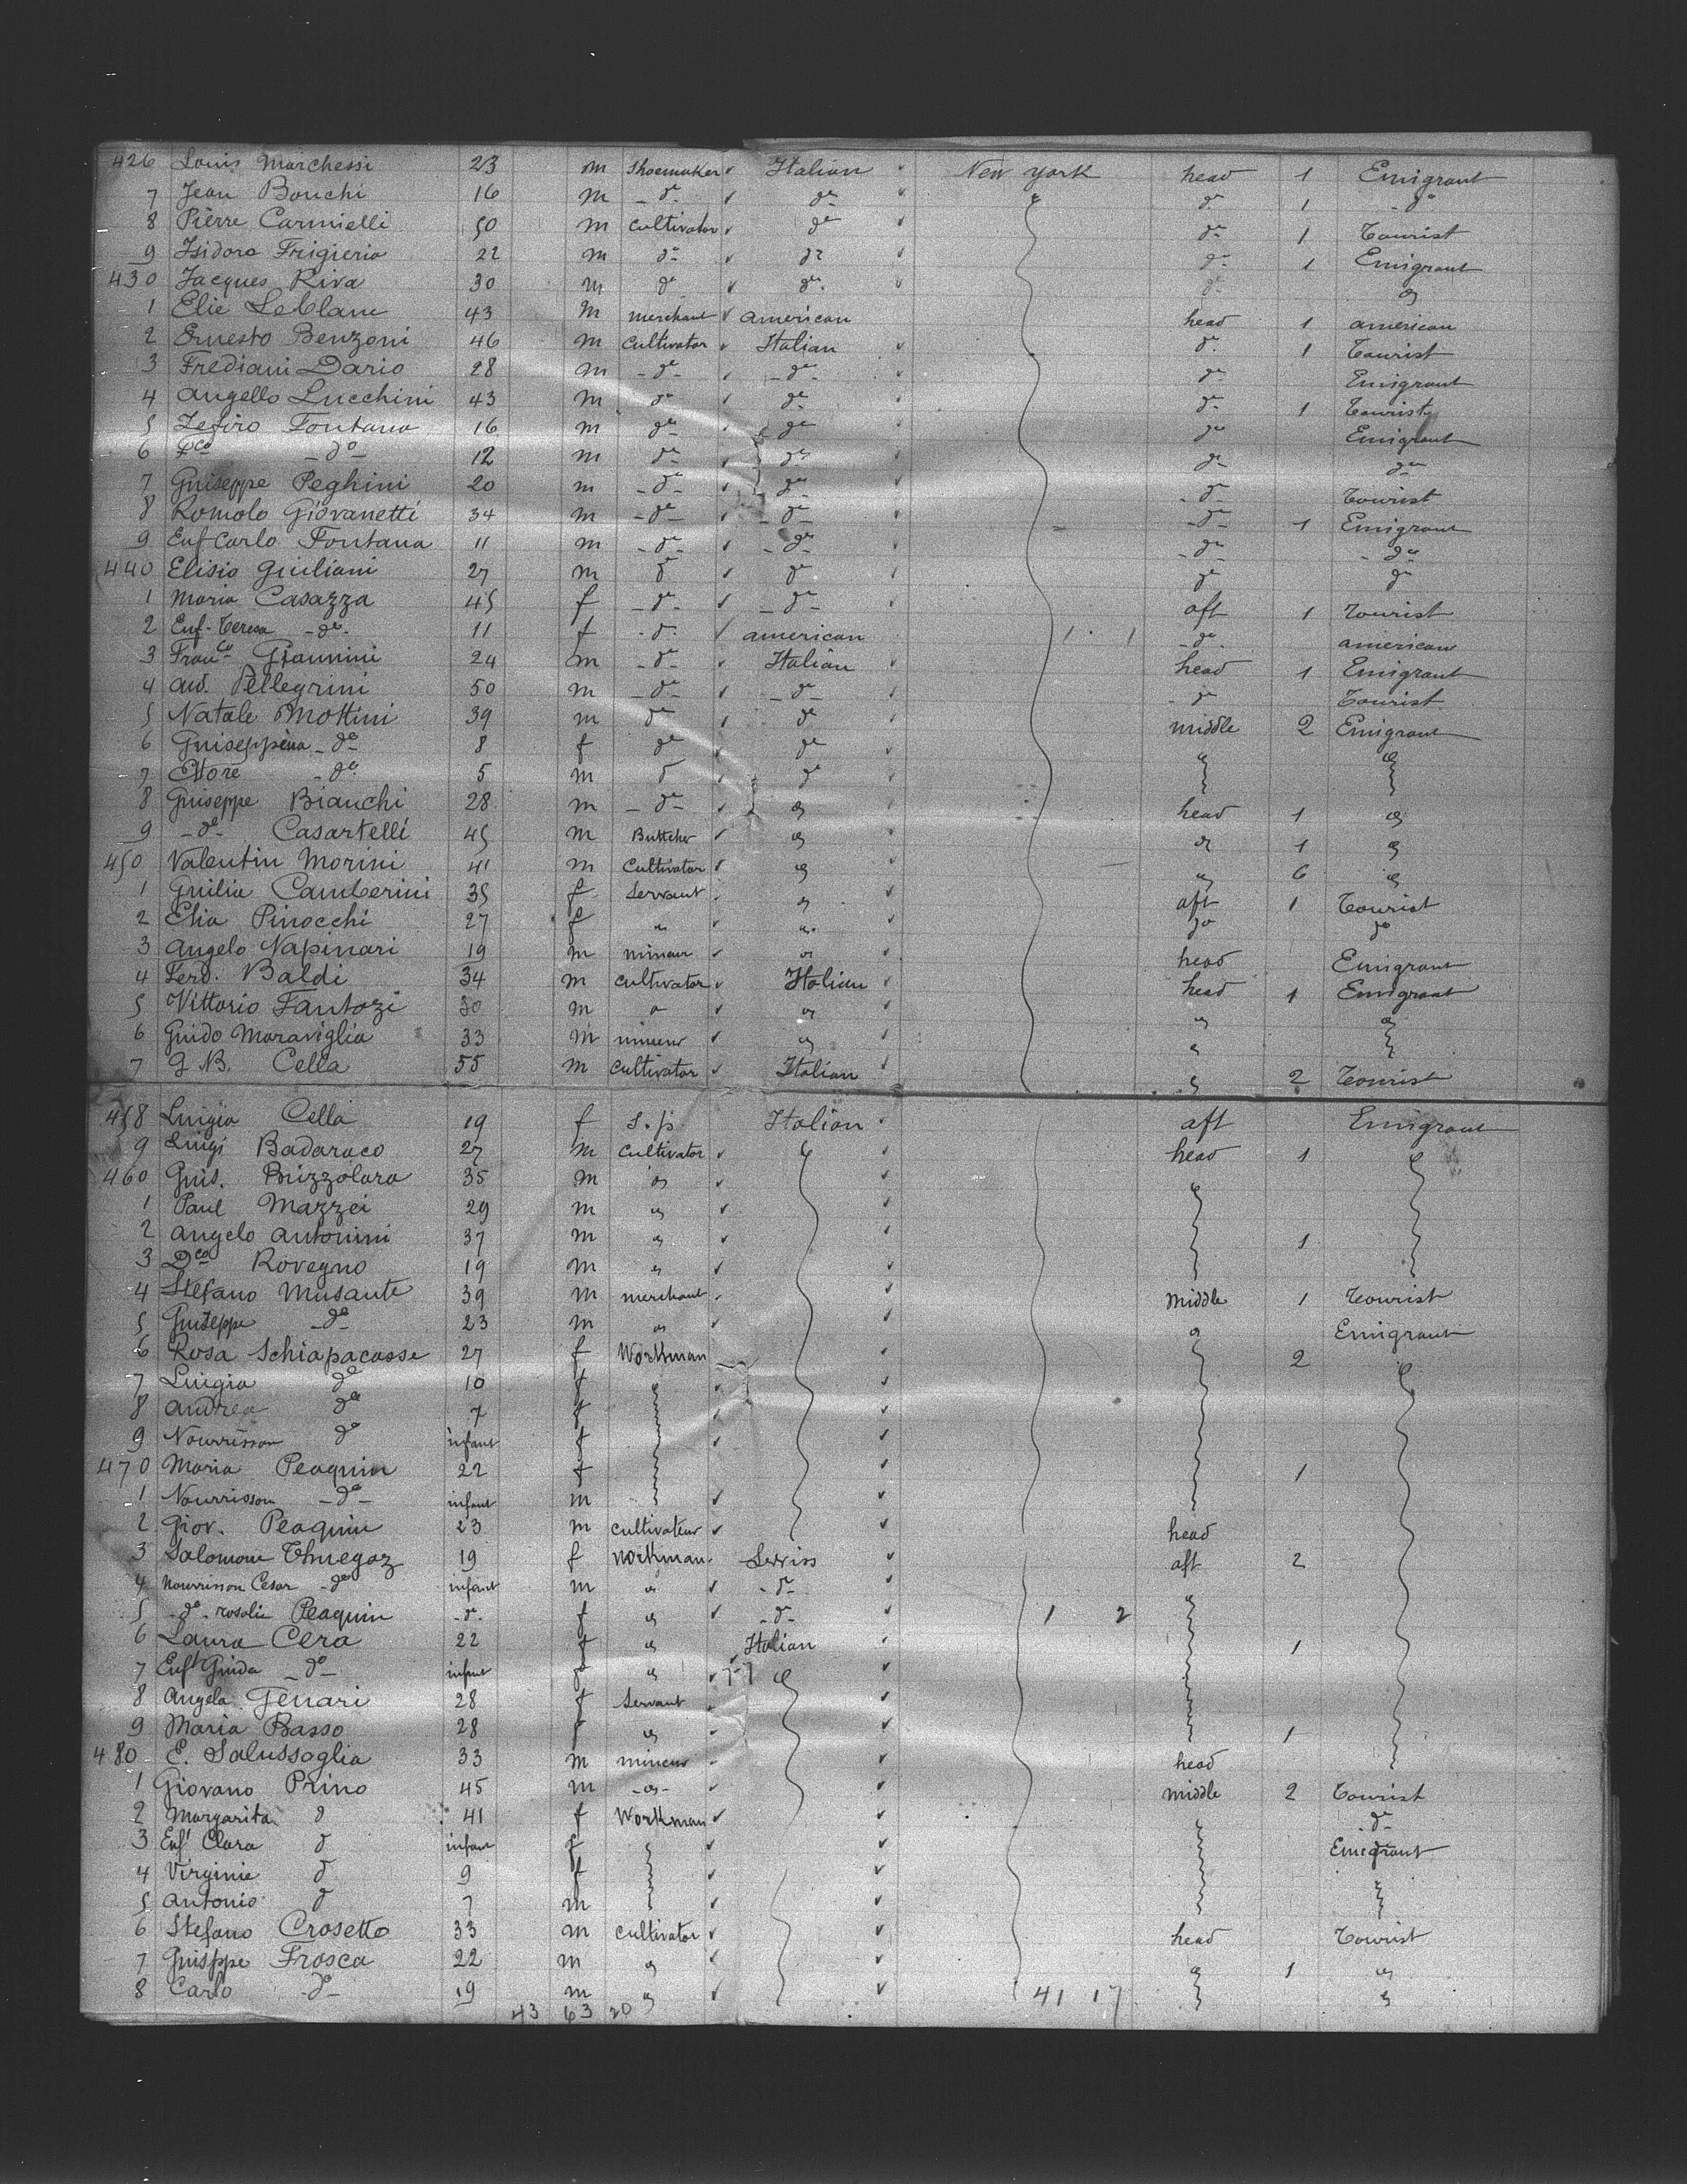 426 Louis Marchessi 23 m Shoemaker Italian New York head 1 Emigrant
7 Jean Bonchi 16 m do do do 1 do
8 Pierre Carmielli 50 m Cultivator do do 1 Tourist
9 Isidoro Frigierio 22 m do do do 1 Emigrant
430 Jacques Riva 30 m do do do "
1 Elie LeBlanc 43 m merchant american head 1 american
2 Ernesto Benzoni 46 m Cultivator Italian do 1 Tourist
3 Frediani Dario 28 m do do do Emigrant
4 Angello Lucchini 43 m do do do 1 Tourist
5 Zefiro Fontana 16 m do do do Emigrant
6 Fco do 12 m do do do do
7 Guiseppe Peghini 20 m do do do Tourist
8 Romolo Giovanetti 34 m do do do 1 Emigrant
9 Enf Carlo Fontana 11 m do do do do
440 Elisio Giuliani 27 m do do do do
1 Maria Casazza 45 f do do aft 1 Tourist
2 Enf. Teresa do 11 f do american 1 1 do american
3 Franco Giannini 24 m do Italian head 1 Emigrant
4 Ad. Pellegrini 50 m do do do Tourist
5 Natale Mottini 39 m do do middle 2 Emigrant
6 Guiseppina do 8 f do do " "
7 Ettore do 5 m do do
8 Guiseppe Bianchi 28 m do " head 1 "
9 do Casartelli 45 m Buttcher " " 1 "
450 Valentin Morini 41 m Cultivator " " 6 "
1 Guilia Camberini 35 f Servant " aft 1 Tourist
2 Elia Pinocchi 27 f " " do do
3 Angelo Napinari 19 m mineur " head Emigrant
4 Ferd. Baldi 34 m cultivator Italian head 1 Emigrant
5 Vittorio Fantozi 30 m " " " "
6 Guido Maraviglia 33 m mineur " "
7 G B. Cella 55 m Cultivator Italian " 2 Tourist
458 Luigia Cella 19 f s.p. Italian aft Emigrant
9 Luigi Badaraco 27 m Cultivator " head 1 "
460 Guis. Brizzolara 35 m " "
1 Paul Mazzei 29 m "
2 Angelo Antonini 37 m " 1
3 Dco Rovegno 19 m "
4 Stefano Musante 39 m merchant middle 1 Tourist
5 Guiseppe do 23 m " " Emigrant
6 Rosa Schiapacasse 27 f Workman 2 "
7 Luigia do 10 f "
8 Andrea do 7 f
9 Nourrisson do infant f
470 Maria Peaquin 22 f 1
1 Nourrisson do infant m
2 Giov. Peaquin 23 m Cultivateur head
3 Salomone Thuegaz 19 f Workman Swiss aft 2
4 Nourrisson Cesar do infant m " do
5 do rosalie Peaquin do f " do 1 2 "
6 Laura Cera 22 f " Italian 1
7 Enft Guida do infant f " "
8 Angela Genari 28 f Servant
9 Maria Basso 28 f " 1
480 E. Salussoglia 33 m mineur head
1 Giovano Prino 45 m " middle 2 Tourist
2 Margarita do 41 f Workman " do
3 Enft Clara do infant f Emigrant
4 Virginie do 9 f "
5 Antonio do 7 m
6 Stefano Crosetto 33 m Cultivator head Tourist
7 Guisppe Frosca 22 m " " 1 "
8 Carlo do 19 m " 41 17 "
43 63 20